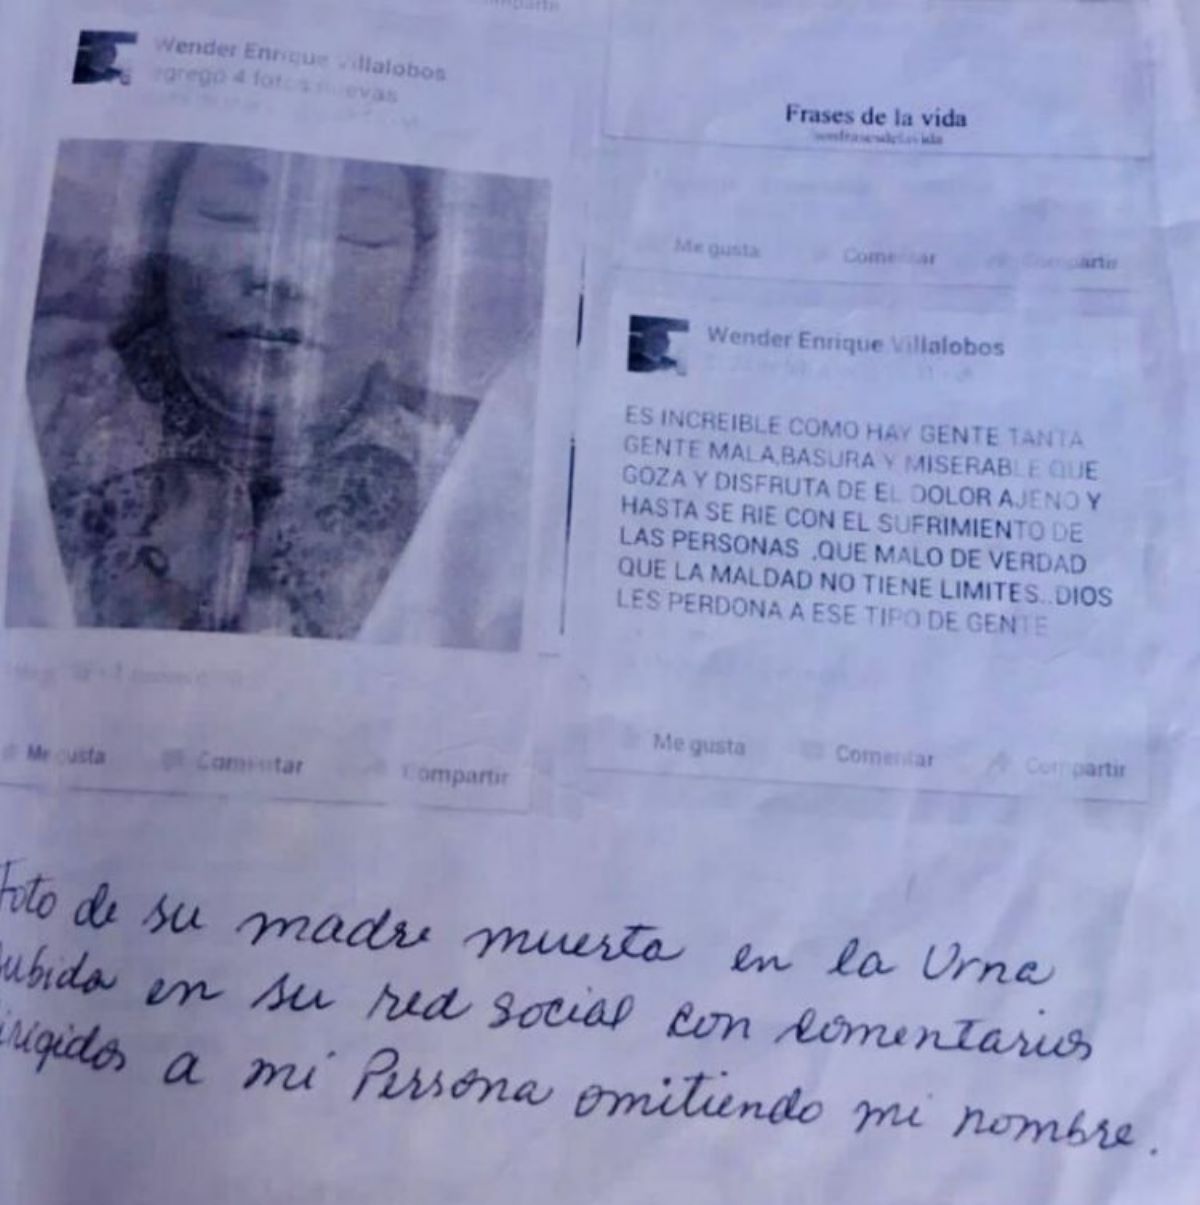 Wender Enrique Villalobos
agregó 4 fotos nuevas
Me gusta Comentar Compartir
Frases de la vida
Me gusta Comentar Compartir
Wender Enrique Villalobos
ES INCREIBLE COMO HAY GENTE TANTA
GENTE MALA,BASURA Y MISERABLE QUE
GOZA Y DISFRUTA DE EL DOLOR AJENO Y
HASTA SE RIE CON EL SUFRIMIENTO DE
LAS PERSONAS ,QUE MALO DE VERDAD
QUE LA MALDAD NO TIENE LIMITES..DIOS
LES PERDONA A ESE TIPO DE GENTE
Me gusta Comentar Compartir
Foto de su madre muerta en la Urna
Subida en su red social con comentarios
dirigidos a mi Persona omitiendo mi nombre.